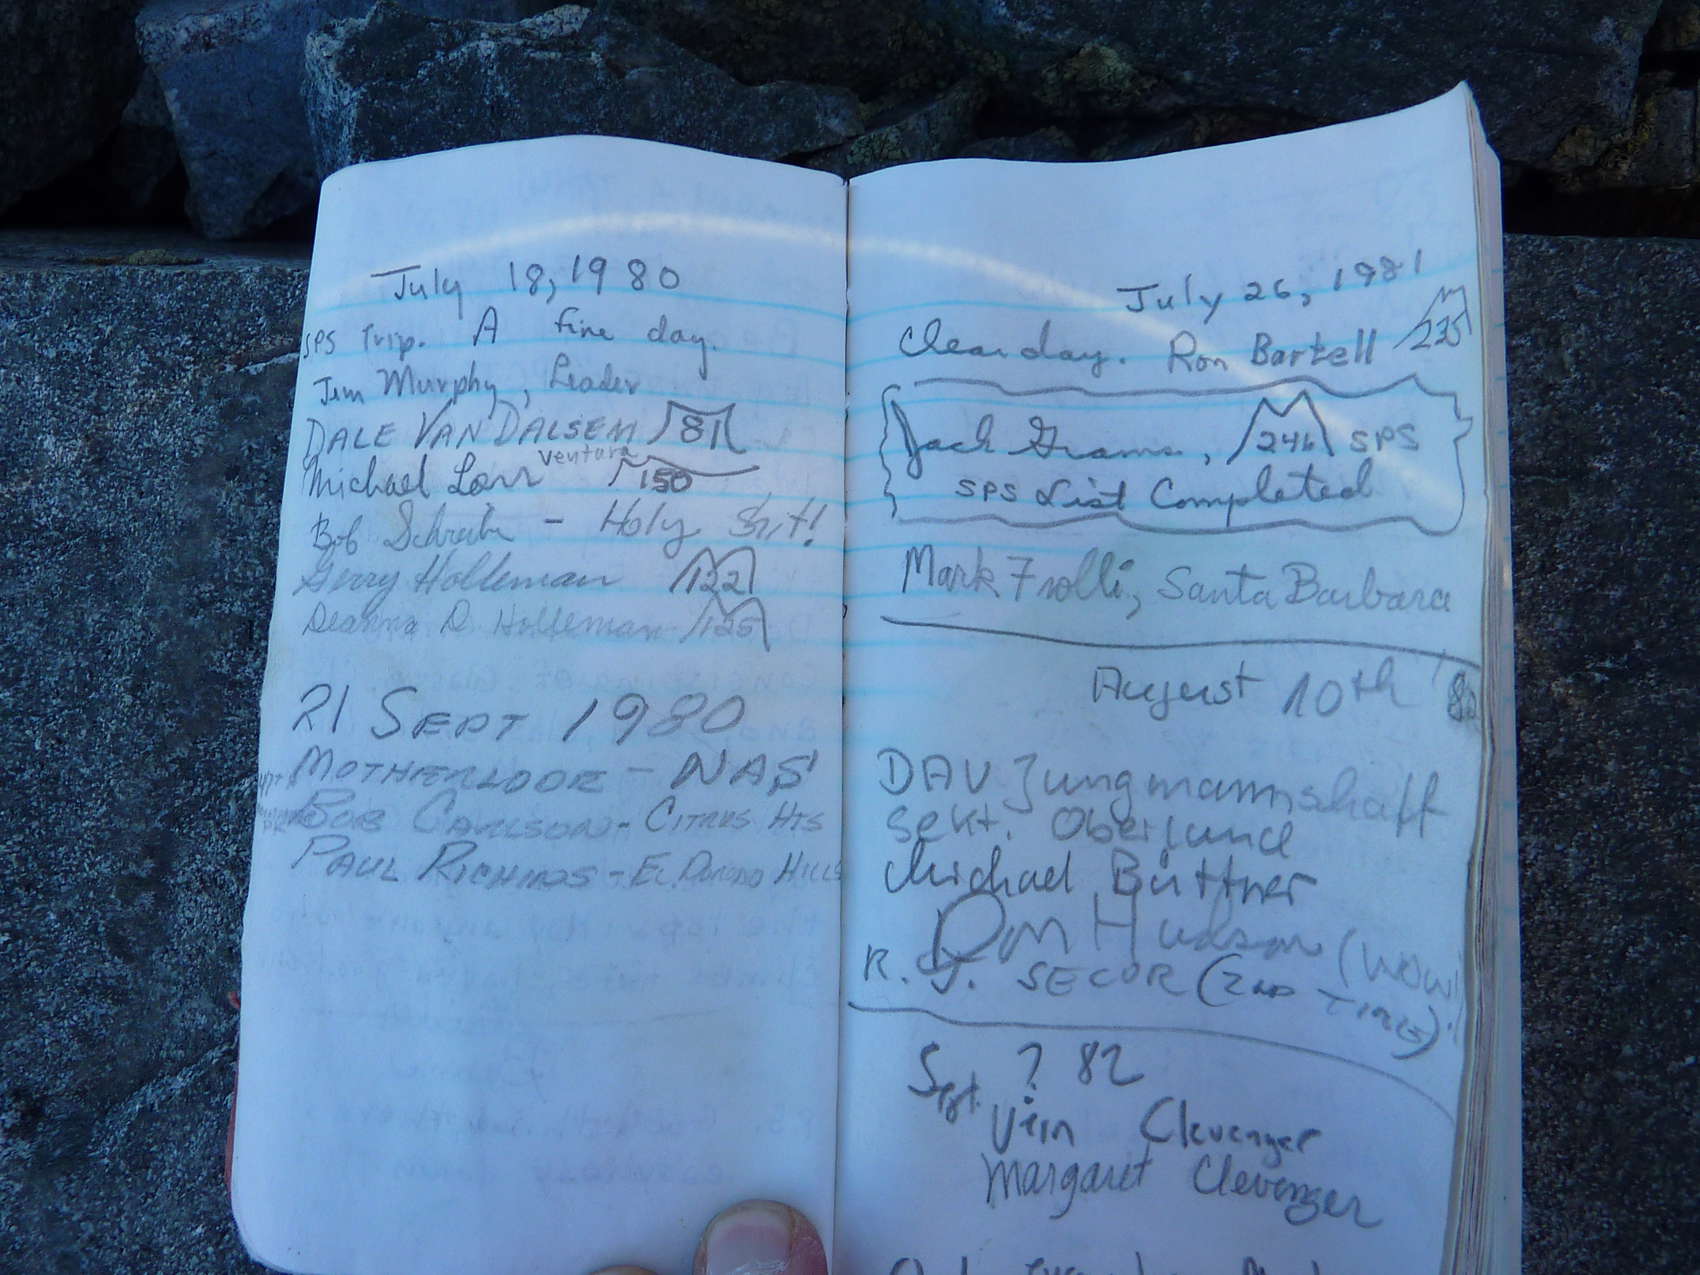 July 18, 1980
SPS Trip. A fine day.
Jim Murphy, Leader
DALE VAN DALSEM 81
Ventura
Michael Larr 150
Bob Schreiber - Holy Shit!
Gerry Holleman 122
Deanna D Holleman 125
21 SEPT 1980
MOTHERLODE - NAS
BOB CARLSON - CITRUS HTS
PAUL RICHINS - EL DORADO HILLS
July 26, 1981
Clear day. Ron Bartell 235
Jack Grams, 246 SPS
SPS List Completed
Mark Frolli, Santa Barbara
August 10th '82
DAV Jungmannschaft
Sekt. Oberland
Michael Büttner
Hudson (WOW!
R. J. SECOR (2ND TIME)!
Sept. ? 82
Vern Clevenger
Margaret Clevenger